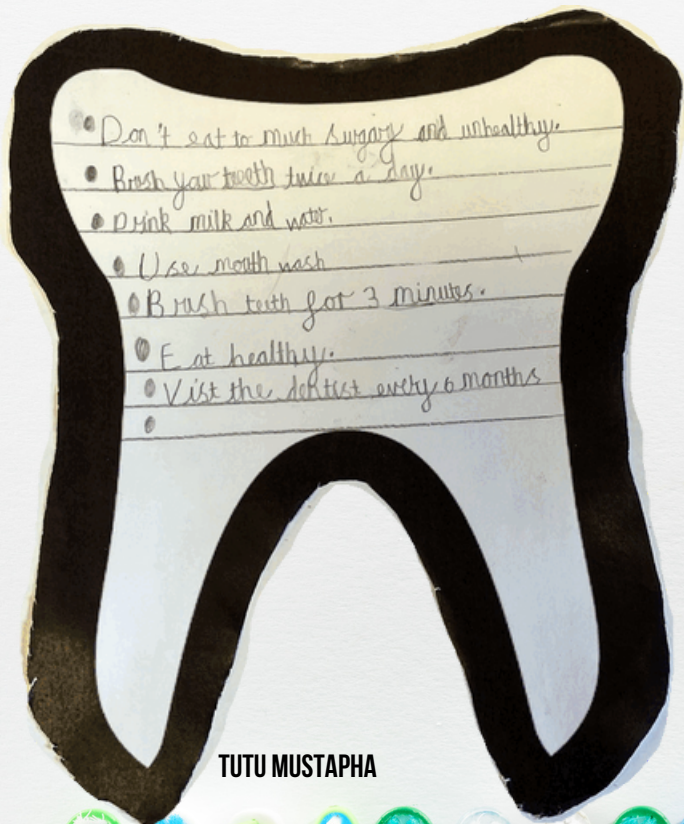 • Don't eat to much sugary and unhealthy.
• Brush your teeth twice a day.
• Drink milk and water.
• Use mouth wash
• Brush teeth for 3 minutes.
• Eat healthy.
• Vist the dentist every 6 months
•
TUTU MUSTAPHA